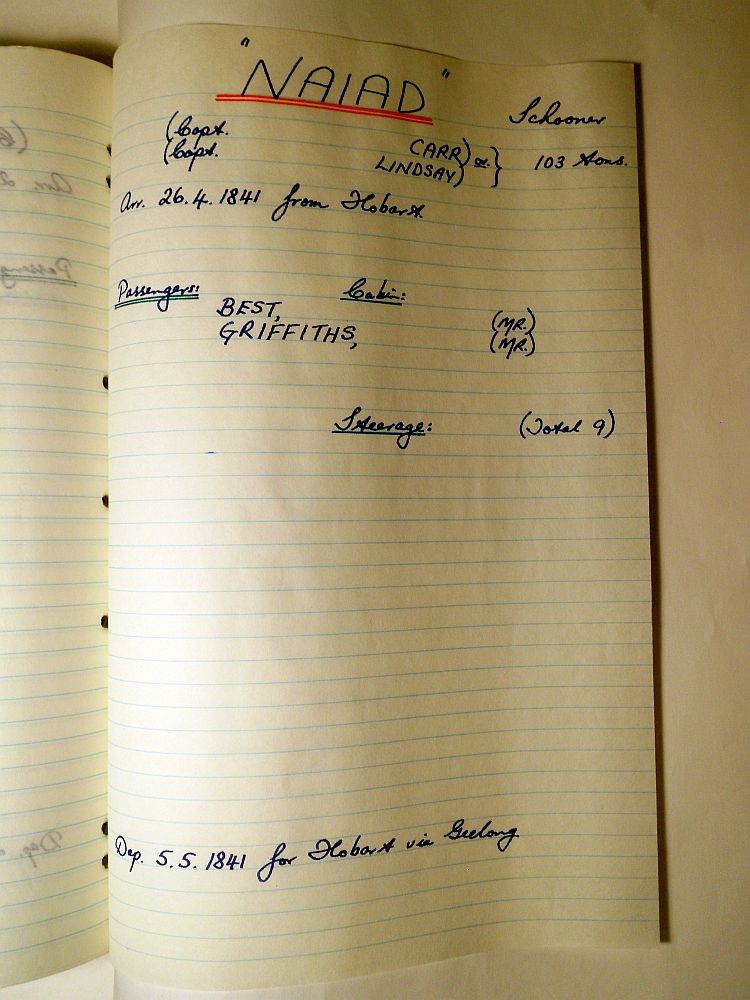 "NAIAD"
Schooner
(Capt. CARR) or } 103 tons.
(Capt. LINDSAY)
Arr. 26.4.1841 from Hobart
Passengers: Cabin:
BEST, (MR.)
GRIFFITHS, (MR.)
Steerage: (Total 9)
Dep. 5.5.1841 for Hobart via Geelong